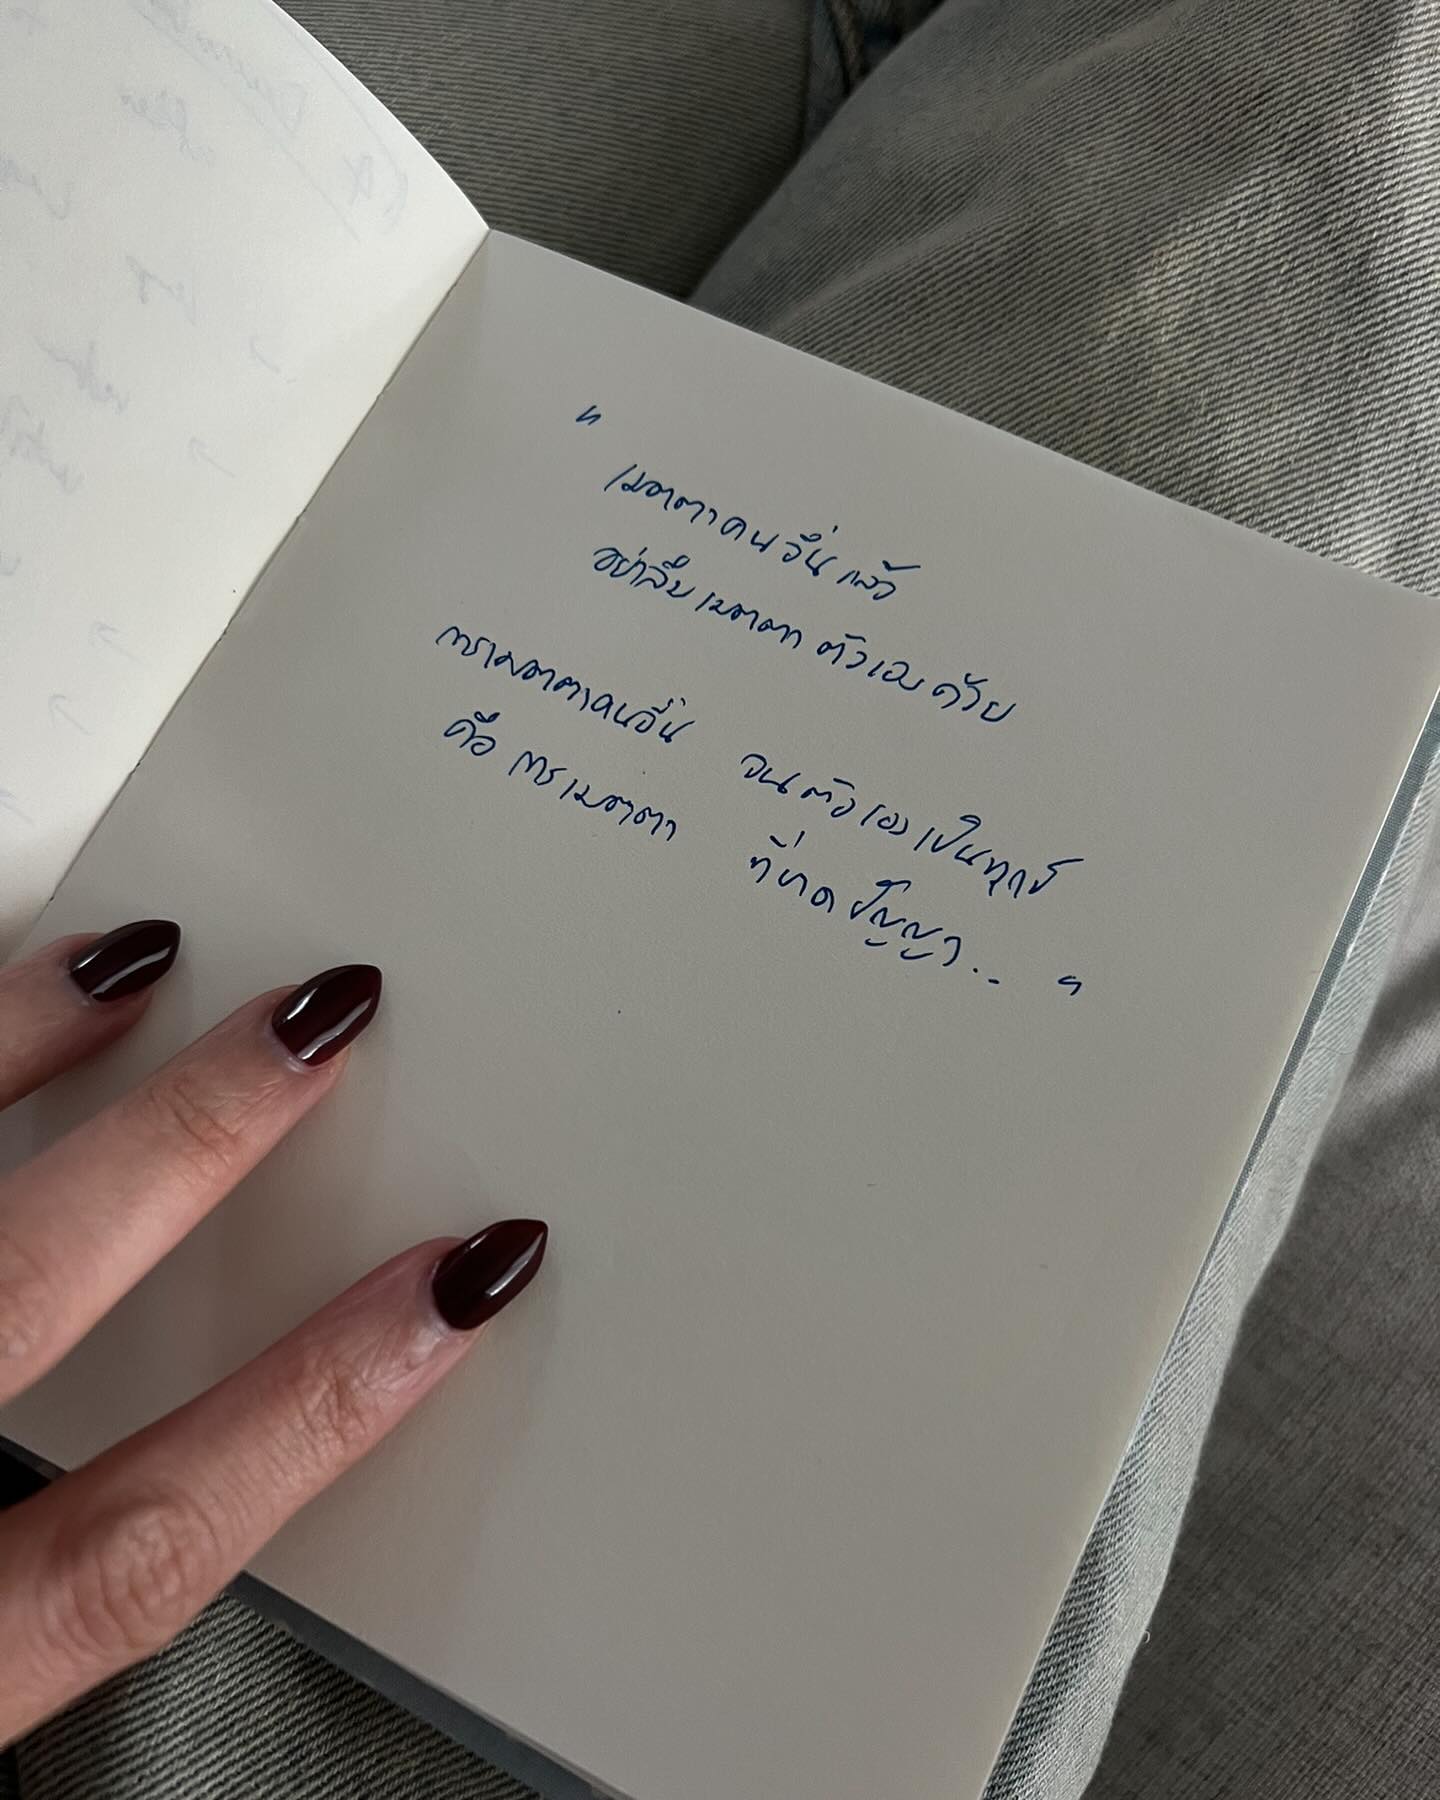 "
เมตตาคนอื่นแล้ว
อย่าลืมเมตตาตัวเองด้วย
การเมตตาคนอื่น จนตัวเองเป็นทุกข์
คือ การเมตตา ที่ขาดปัญญา.. "